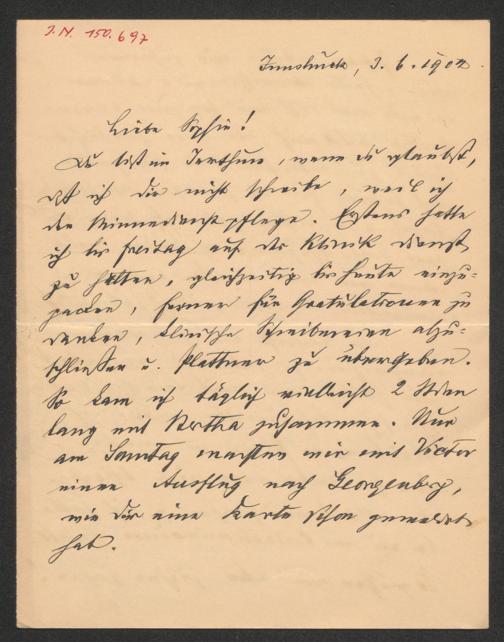 I.N. 150.697
Innsbruck, 3.6.1902.
Liebe Sophie!
Du bist im Irrthum, wenn du glaubst,
daß ich dir nicht schreibe, weil ich
den Minnedienst pflege. Erstens hatte
ich bis Freitag auf der Klinik Dienst
zu halten, gleichzeitig bis heute einzu-
packen, ferner für Gratulationen zu
danken, klinische Schreibereien abzu-
schließen u. Plattner zu übergeben.
So kam ich täglich vielleicht 2 Stunden
lang mit Bertha zusammen. Nur
am Sonntag machten wir mit Victor
einen Ausflug nach Georgenberg,
wie dir eine Karte schon gemeldet
hat.